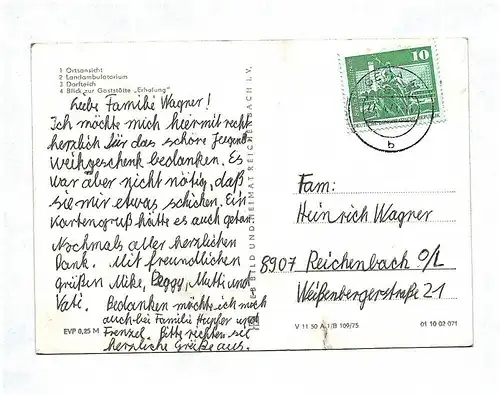 1 Ortsansicht
2 Landambulatorium
3 Dorfteich
4 Blick zur Gaststätte „Erholung"
Liebe Familie Wagner!
Ich möchte mich hiermit recht
herzlich für das schöne Jugend-
weihgeschenk bedanken. Es
war aber nicht nötig, daß
sie mir etwas schicken. Ein
Kartengruß hätte es auch getan.
Nochmals aller herzlichen
Dank. Mit freundlichen
grüßen Mike, Peggy, Mutti und
Vati. Bedanken möchte ich mich
auch bei Familie Hupfer und
Frenzel. Bitte richten sie
herzliche Grüße aus.
EVP 0,25 M
BILD UND HEIMAT REICHENBACH I. V.
10
b
Fam:
Heinrich Wagner
8907 Reichenbach O/L
Weißenbergerstraße 21
V 11 50 A 1/B 109/75
01 10 02 071